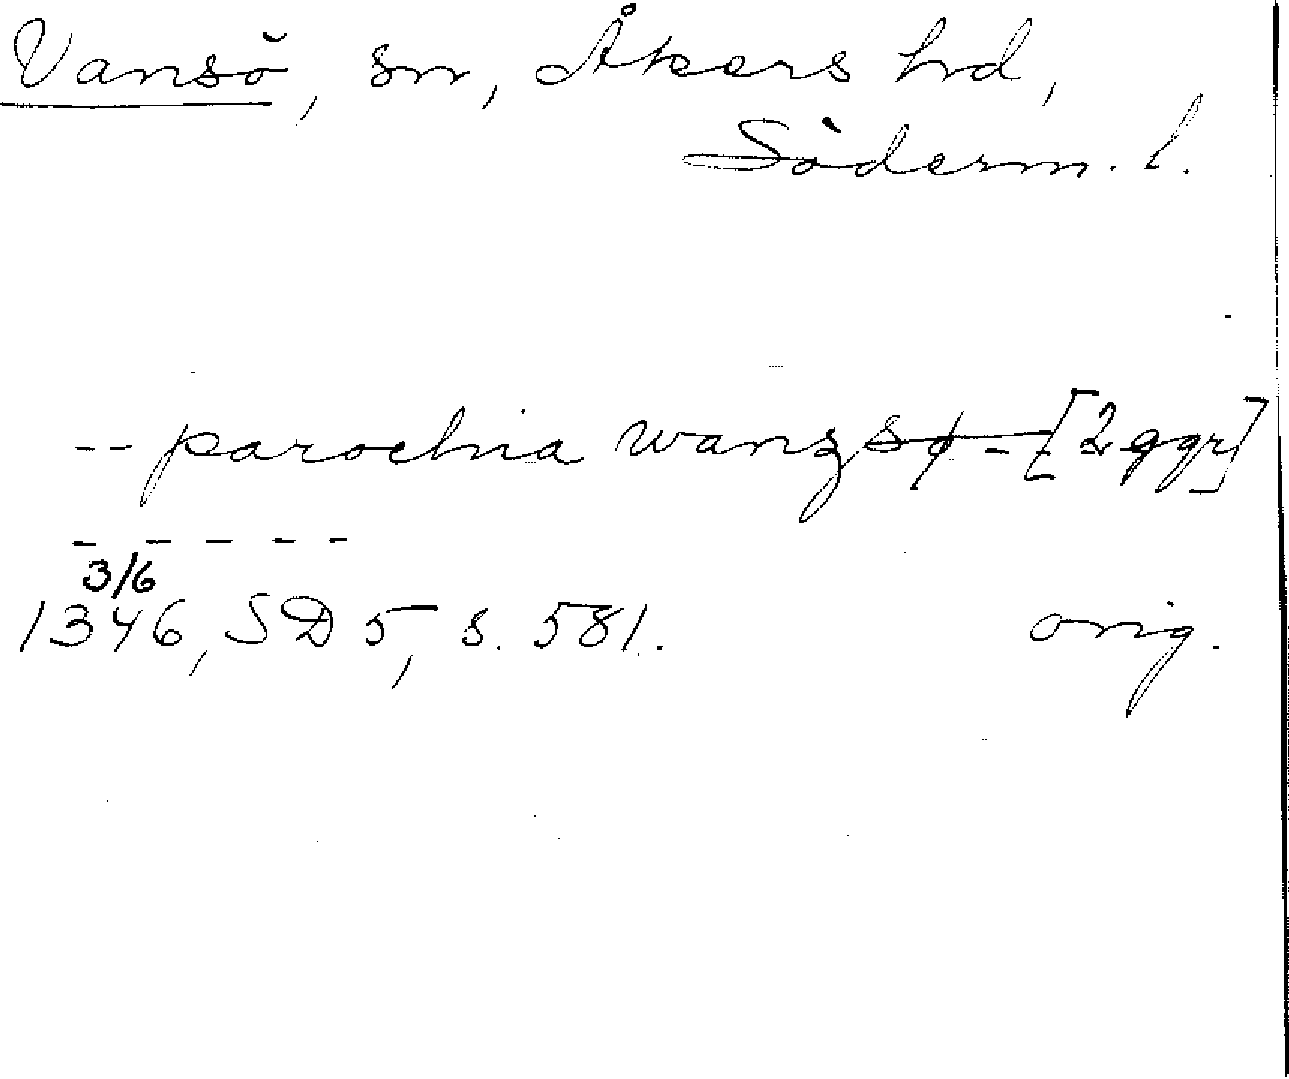 Vansö, sn, Åkers hd,
Söderm. l.
-- parochia wanzsø - - [2 ggr]
- - - - -
3/6
1346, SD 5, s. 581. orig.